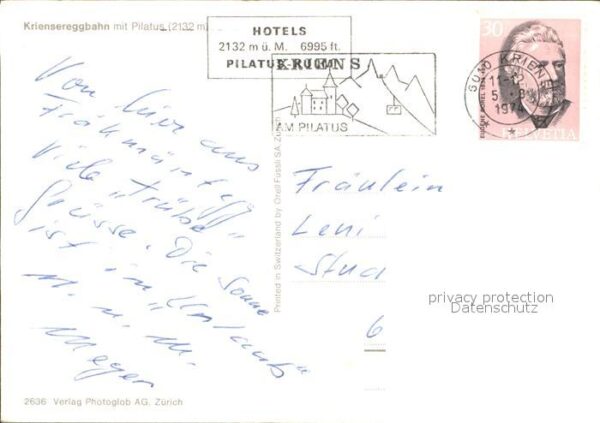 Kriensereggbahn mit Pilatus (2132 m)
HOTELS
2132 m ü. M. 6995 ft.
PILATUS-KULM
KRIENS
AM PILATUS
6010 KRIENS
1974
30
EUGÈNE BOREL
HELVETIA
Von hier aus
Fräkmüntegg
viele "trübe"
Grüsse. Die Sonne
ist in "Urlaub"
M. u. M.
Meyer
Fräulein
Leni
Stud
6
privacy protection
Datenschutz
Printed in Switzerland by Orell Füssli SA, Zürich
2636 Verlag Photoglob AG, Zürich